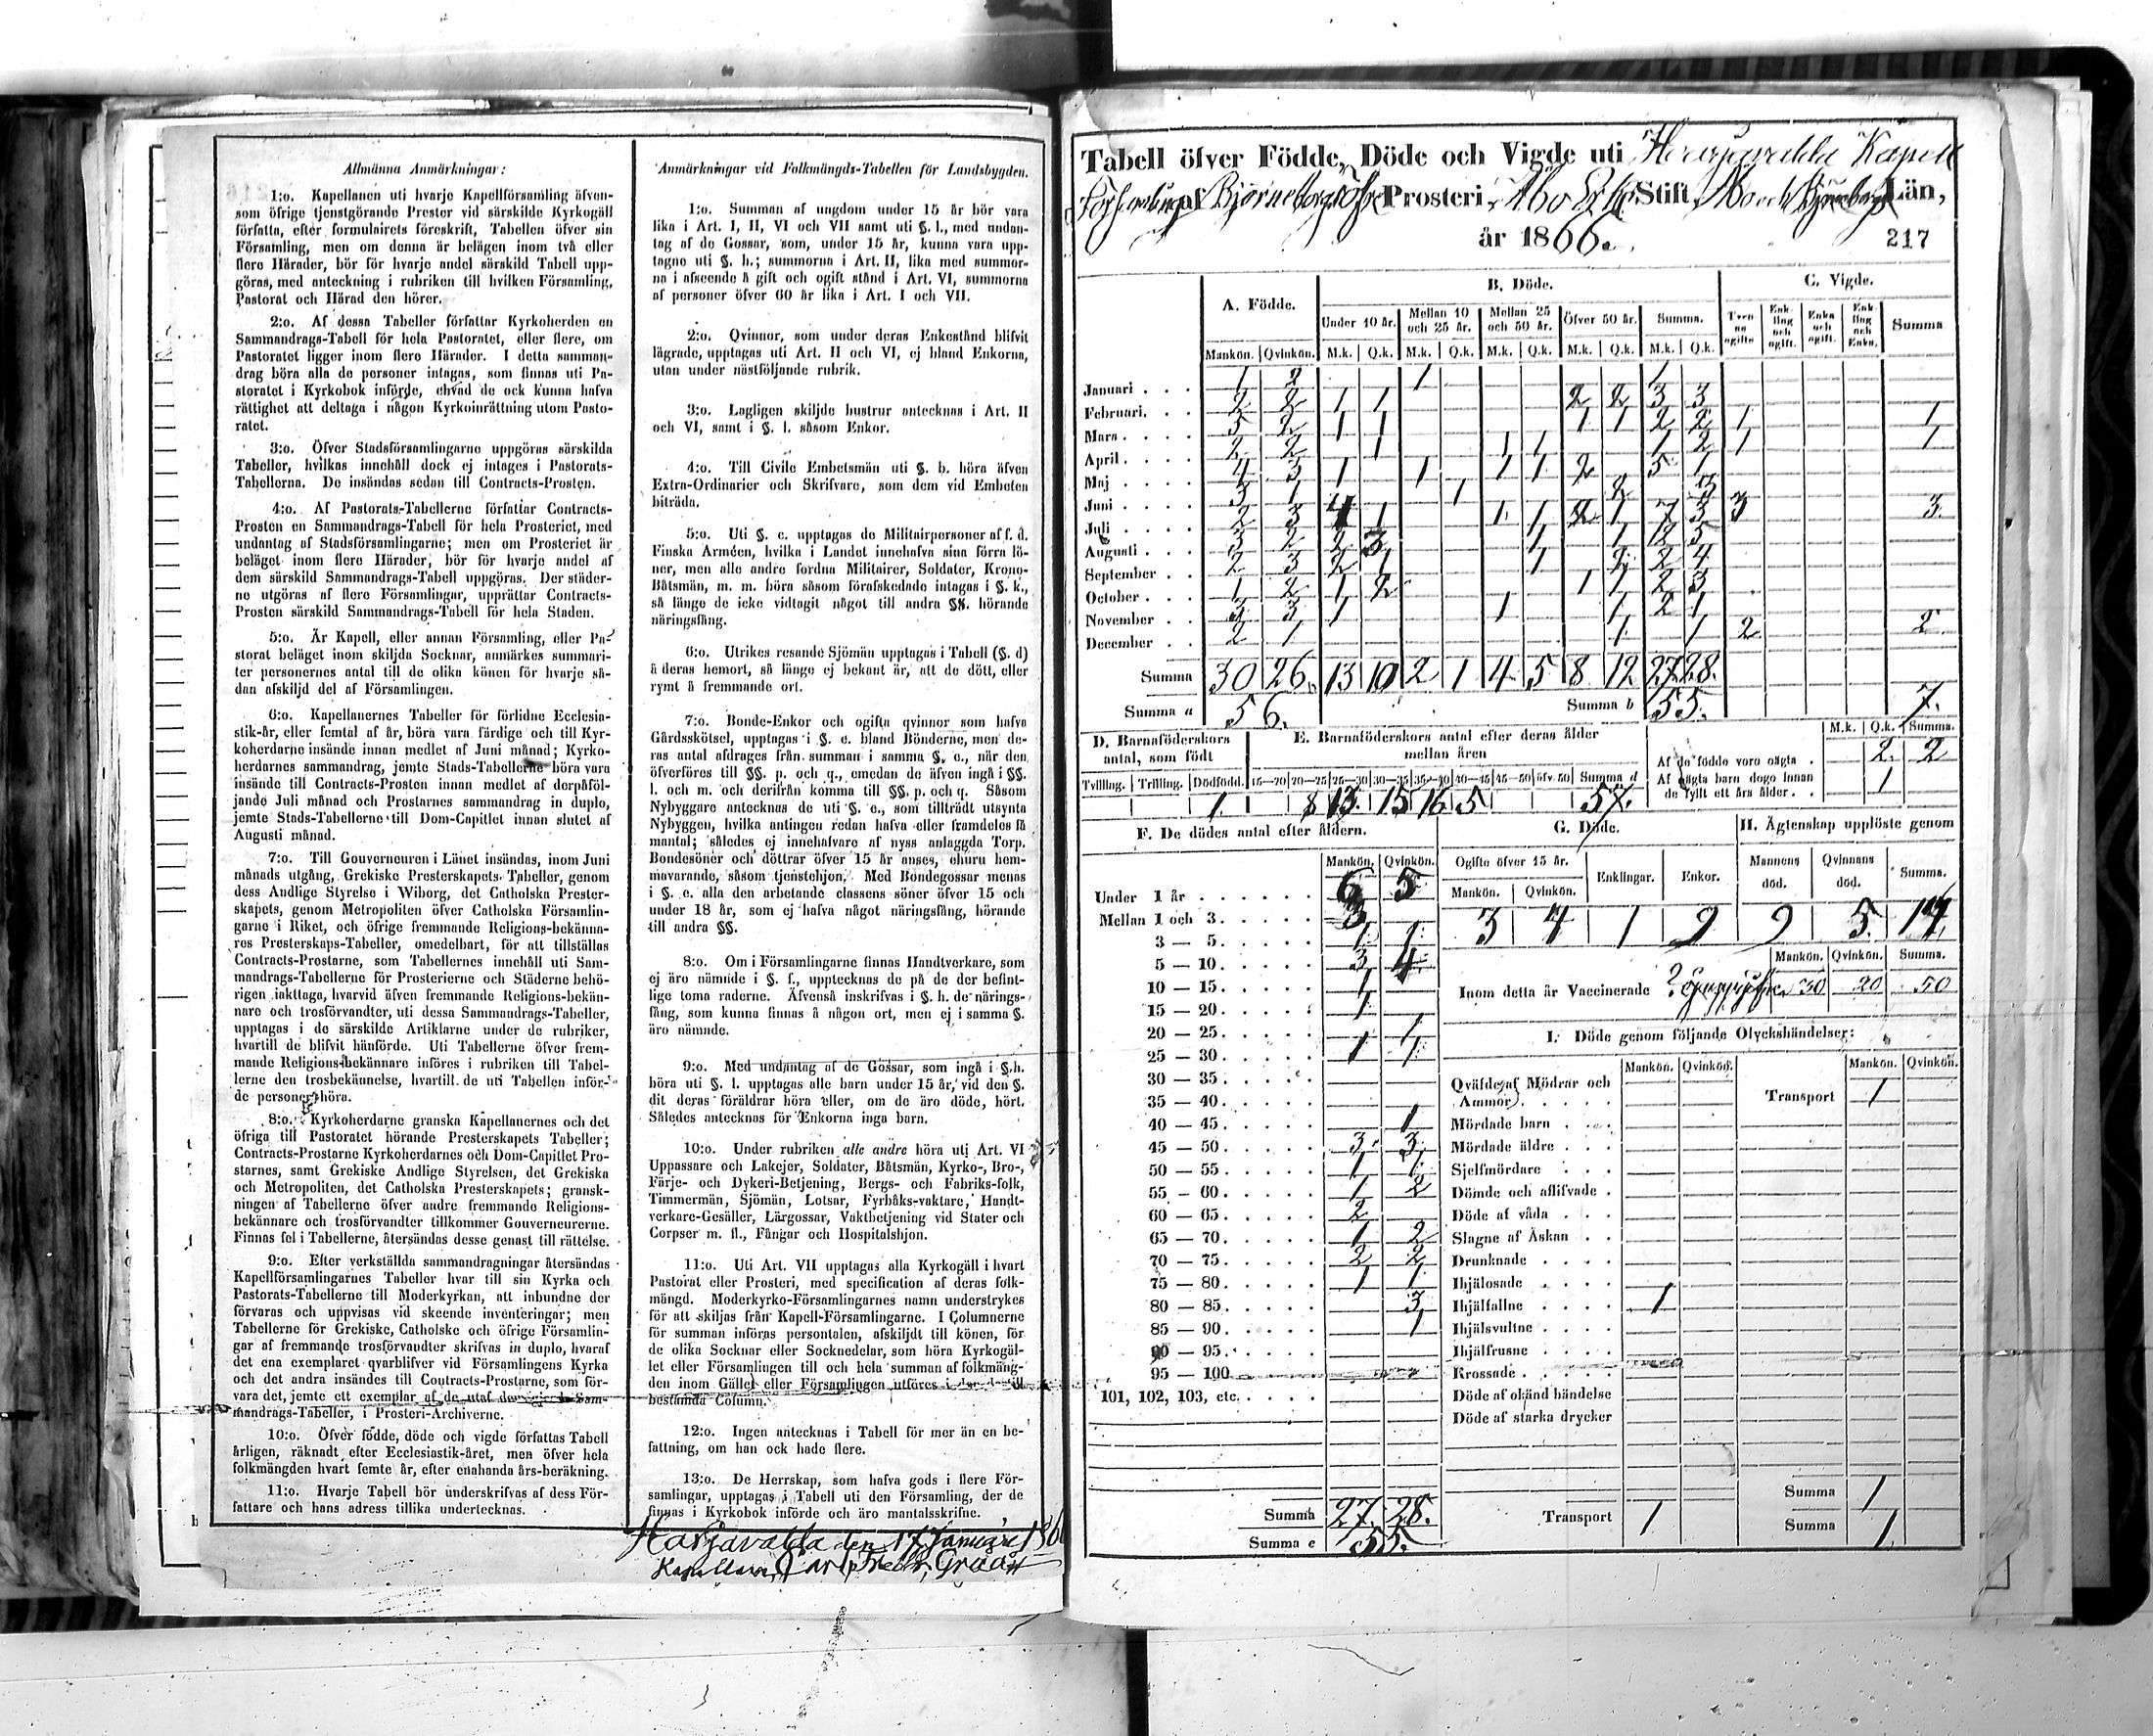 Allmänna Anmärkningar:
1:o. Kapellanen uti hvarje Kapellförsamling äfven-
som öfrige tjenstgörande Prester vid särskilde Kyrkogäll
författa, efter formulairets föreskrift, Tabellen öfver sin
Församling, men om denna är belägen inom två eller
flere Härader, bör för hvarje andel särskild Tabell upp-
göras, med anteckning i rubriken till hvilken Församling,
Pastorat och Härad den hörer.
2:o. Af dessa Tabeller författar Kyrkoherden en
Sammandrags-Tabell för hela Pastoratet, eller flere, om
Pastoratet ligger inom flere Härader. I detta samman-
drag böra alla de personer intagas, som finnas uti Pa-
storatet i Kyrkobok införde, ehvad de ock kunna hafva
rättighet att deltaga i någon Kyrkoinrättning utom Pasto-
ratet.
3:o. Öfver Stadsförsamlingarne uppgöras särskilda
Tabeller, hvilkas innehåll dock ej intages i Pastorats-
Tabellerna. De insändas sedan till Contracts-Prosten.
4:o. Af Pastorats-Tabellerne författar Contracts-
Prosten en Sammandrags-Tabell för hela Prosteriet, med
undantag af Stadsförsamlingarne; men om Prosteriet är
beläget inom flere Härader, bör för hvarje andel af
dem särskild Sammandrags-Tabell uppgöras. Der städer-
ne utgöras af flere Församlingar, upprättar Contracts-
Prosten särskild Sammandrags-Tabell för hela Staden.
5:o. Är Kapell, eller annan Församling, eller Pa-
storat beläget inom skiljda Socknar, anmärkes summari-
ter personernes antal till de olika könen för hvarje så-
dan afskiljd del af Församlingen.
6:o. Kapellanernes Tabeller för förlidne Ecclesia-
stik-år, eller femtal af år, böra vara färdige och till Kyr-
koherdarne insände innan medlet af Juni månad; Kyrko-
herdarnes sammandrag, jemte Stads-Tabellerne böra vara
insände till Contracts-Prosten innan medlet af derpåföl-
jande Juli månad och Prostarnes sammandrag in duplo,
jemte Stads-Tabellerne till Dom-Capitlet innan slutet af
Augusti månad.
7:o. Till Gouverneuren i Länet insändas, inom Juni
månads utgång, Grekiske Presterskapets Tabeller, genom
dess Andlige Styrelse i Wiborg, det Catholska Prester-
skapets, genom Metropoliten öfver Catholska Församlin-
garne i Riket, och öfrige fremmande Religions-bekänna-
res Presterskaps-Tabeller, omedelbart, för att tillställas
Contracts-Prostarne, som Tabellernes innehåll uti Sam-
mandrags-Tabellerne för Prosterierne och Städerne behö-
rigen iakttaga, hvarvid äfven fremmande Religions-bekän-
nare och trosförvandter, uti dessa Sammandrags-Tabeller,
upptagas i de särskilde Artiklarne under de rubriker,
hvartill de blifvit hänförde. Uti Tabellerne öfver frem-
mande Religions-bekännare införes i rubriken till Tabel-
lerne den trosbekännelse, hvartill de uti Tabellen inför-
de personer höra.
8:o. Kyrkoherdarne granska Kapellanernes och det
öfriga till Pastoratet hörande Presterskapets Tabeller;
Contracts-Prostarne Kyrkoherdarnes och Dom-Capitlet Pro-
starnes, samt Grekiske Andlige Styrelsen, det Grekiska
och Metropoliten, det Catholska Presterskapets; gransk-
ningen af Tabellerne öfver andre fremmande Religions-
bekännare och trosförvandter tillkommer Gouverneurerne.
Finnas fel i Tabellerne, återsändas desse genast till rättelse.
9:o. Efter verkställda sammandragningar återsändas
Kapellförsamlingarnes Tabeller hvar till sin Kyrka och
Pastorats-Tabellerne till Moderkyrkan, att inbundne der
förvaras och uppvisas vid skeende inventeringar; men
Tabellerne för Grekiske, Catholske och öfrige Församlin-
gar af fremmande trosförvandter skrifvas in duplo, hvaraf
det ena exemplaret qvarblifver vid Församlingens Kyrka
och det andra insändes till Contracts-Prostarne, som för-
vara det, jemte ett exemplar af de utaf dem gjorde Sam-
mandrags-Tabeller, i Prosteri-Archiverne.
10:o. Öfver födde, döde och vigde författas Tabell
årligen, räknadt efter Ecclesiastik-året, men öfver hela
folkmängden hvart femte år, efter enahanda års-beräkning.
11:o. Hvarje Tabell bör underskrifvas af dess För-
fattare och hans adress tillika undertecknas.
Anmärkningar vid Folkmängds-Tabellen för Landsbygden.
1:o. Summan af ungdom under 15 år bör vara
lika i Art. I, II, VI och VII samt uti §. l., med undan-
tag af de Gossar, som, under 15 år, kunna vara upp-
tagne uti §. h.; summorna i Art. II, lika med summor-
na i afseende å gift och ogift stånd i Art. VI, summorna
af personer öfver 60 år lika i Art. I och VII.
2:o. Qvinnor, som under deras Enkestånd blifvit
lägrade, upptagas uti Art. II och VI, ej bland Enkorna,
utan under nästföljande rubrik.
3:o. Lagligen skiljde hustrur antecknas i Art. II
och VI, samt i §. l. såsom Enkor.
4:o. Till Civile Embetsmän uti §. b. höra äfven
Extra-Ordinarier och Skrifvare, som dem vid Embeten
biträda.
5:o. Uti §. c. upptagas de Militairpersoner af f. d.
Finska Arméen, hvilka i Landet innehafva sina förra lö-
ner, men alle andre fordna Militairer, Soldater, Krono-
Båtsmän, m. m. böra såsom förafskedade intagas i §. k.,
så länge de icke vidtagit något till andra §§. hörande
näringsfång.
6:o. Utrikes resande Sjömän upptagas i Tabell (§. d)
å deras hemort, så länge ej bekant är, att de dött, eller
rymt å fremmande ort.
7:o. Bonde-Enkor och ogifta qvinnor som hafva
Gårdsskötsel, upptagas i §. e. bland Bönderne, men de-
ras antal afdrages från summan i samma §. e., när den
öfverföres till §§. p. och q., emedan de äfven ingå i §§.
l. och m. och derifrån komma till §§. p. och q. Såsom
Nybyggare antecknas de uti §. e., som tillträdt utsynta
Nybyggen, hvilka antingen redan hafva eller framdeles få
mantal; således ej innehafvare af nyss anlaggda Torp.
Bondesöner och döttrar öfver 15 år anses, ehuru hem-
mavarande, såsom tjenstehjon. Med Bondegossar menas
i §. e. alla den arbetande classens söner öfver 15 och
under 18 år, som ej hafva något näringsfång, hörande
till andra §§.
8:o. Om i Församlingarne finnas Handtverkare, som
ej äro nämnde i §. f., upptecknas de på de der befint-
lige toma raderne. Äfvenså inskrifvas i §. h. de närings-
fång, som kunna finnas å någon ort, men ej i samma §.
äro nämnde.
9:o. Med undantag af de Gossar, som ingå i §. h.
böra uti §. l. upptagas alle barn under 15 år, vid den §.
dit deras föräldrar höra eller, om de äro döde, hört.
Således antecknas för Enkorna inga barn.
10:o. Under rubriken alle andre höra uti Art. VI
Uppassare och Lakejer, Soldater, Båtsmän, Kyrko-, Bro-,
Färje- och Dykeri-Betjening, Bergs- och Fabriks-folk,
Timmermän, Sjömän, Lotsar, Fyrbåks-vaktare, Handt-
verkare-Gesäller, Lärgossar, Vaktbetjening vid Stater och
Corpser m. fl., Fångar och Hospitalshjon.
11:o. Uti Art. VII upptagas alla Kyrkogäll i hvart
Pastorat eller Prosteri, med specification af deras folk-
mängd. Moderkyrko-Församlingarnes namn understrykes
för att skiljas från Kapell-Församlingarne. I Columnerne
för summan införas persontalen, afskiljdt till könen, för
de olika Socknar eller Socknedelar, som höra Kyrkogäl-
let eller Församlingen till och hela summan af folkmäng-
den inom Gället eller Församlingen utföres i
bestämda Column.
12:o. Ingen antecknas i Tabell för mer än en be-
fattning, om han ock hade flere.
13:o. De Herrskap, som hafva gods i flere För-
samlingar, upptagas i Tabell uti den Församling, der de
finnas i Kyrkobok införde och äro mantalsskrifne.
Harjavalta den 17 Januarie 186
Kapellan Carl Fredr. Graan
Tabell öfver Födde, Döde och Vigde uti Harjavalda Kapell
Församling af Björneborgs Öfre Prosteri, Åbo Erke Stift, Åbo och Björneborgs Län,
år 1866. 217
A. Födde. B. Döde. C. Vigde.
Under 10 år. Mellan 10 och 25 år. Mellan 25 och 50 år. Öfver 50 år. Summa. Tvenne ogifte Enkling och ogift. Enka och ogift. Enkling och Enka. Summa
Mankön. Qvinkön. M.k. Q.k. M.k. Q.k. M.k. Q.k. M.k. Q.k. M.k. Q.k.
Januari . . . 1 2 1 1
Februari. . . 2 2 1 1 2 2 3 3
Mars . . . . 5 2 1 1 1 1 2 2 1 1
April . . . . 2 2 1 1 1 1 2 1 1
Maj . . . . 4 3 1 1 1 1 2 5 1
Juni . . . . 3 1 1 2 3
Juli . . . . 2 3 4 1 1 1 2 1 7 3 3 3.
Augusti . . . 3 2 2 3 1 1 2 5
September . . 2 3 2 1 1 2 2 4
October . . . 1 2 1 2 1 1 2 3
November . . 3 3 1 1 1 2 1
December . . 2 1 1 1 2 2
Summa 30 26. 13 10 2 1 4 5 8 12 27 28.
Summa a 56. Summa b 55. 7.
D. Barnaföderskors antal, som födt
E. Barnaföderskors antal efter deras ålder mellan åren
M.k. Q.k. Summa.
Af de födde voro oägta . 2. 2
Af oägta barn dogo innan de fyllt ett års ålder. . 1
Tvilling. Trilling. Dödfödd. 15—20 20—25 25—30 30—35 35—40 40—45 45—50 öfv. 50 Summa d
1. 8 13. 15 16 5 57.
F. De dödes antal efter åldern.
Mankön. Qvinkön.
Under 1 år . . . . . . 6 5
Mellan 1 och 3. . . . . 3
3 — 5. . . . . 1 1
5 — 10. . . . . 3 4
10 — 15. . . . . 1
15 — 20. . . . . 1
20 — 25. . . . . 1
25 — 30. . . . . 1 1
30 — 35. . . . .
35 — 40. . . . .
40 — 45. . . . . 1
45 — 50. . . . . 3 3
50 — 55. . . . . 1 1
55 — 60. . . . . 1 2
60 — 65. . . . . 2
65 — 70. . . . . 1 2
70 — 75. . . . . 2 2
75 — 80. . . . . 1 1
80 — 85. . . . . 3
85 — 90. . . . . 1
90 — 95. . . . .
95 — 100
101, 102, 103, etc. . . . .
Summa 27. 28.
Summa e 55.
G. Döde.
Ogifte öfver 15 år. Enklingar. Enkor.
Mankön. Qvinkön.
3 4 1 9
H. Ägtenskap upplöste genom
Mannens död. Qvinnans död. Summa.
9 5. 14.
Mankön. Qvinkön. Summa.
Inom detta år Vaccinerade 30 20 50
I. Döde genom följande Olyckshändelser:
Mankön. Qvinkön. Mankön. Qvinkön.
Qväfde af Mödrar och Ammor . . . . . Transport 1
Mördade barn . . .
Mördade äldre . . .
Sjelfmördare . . .
Dömde och aflifvade .
Döde af våda . . .
Slagne af Åskan . .
Drunknade . . . .
Ihjälosade . . . .
Ihjälfallne . . . . 1
Ihjälsvultne . . . .
Ihjälfrusne . . . .
Krossade . . . . .
Döde af okänd händelse
Döde af starka drycker
Summa 1
Transport 1 Summa 1.